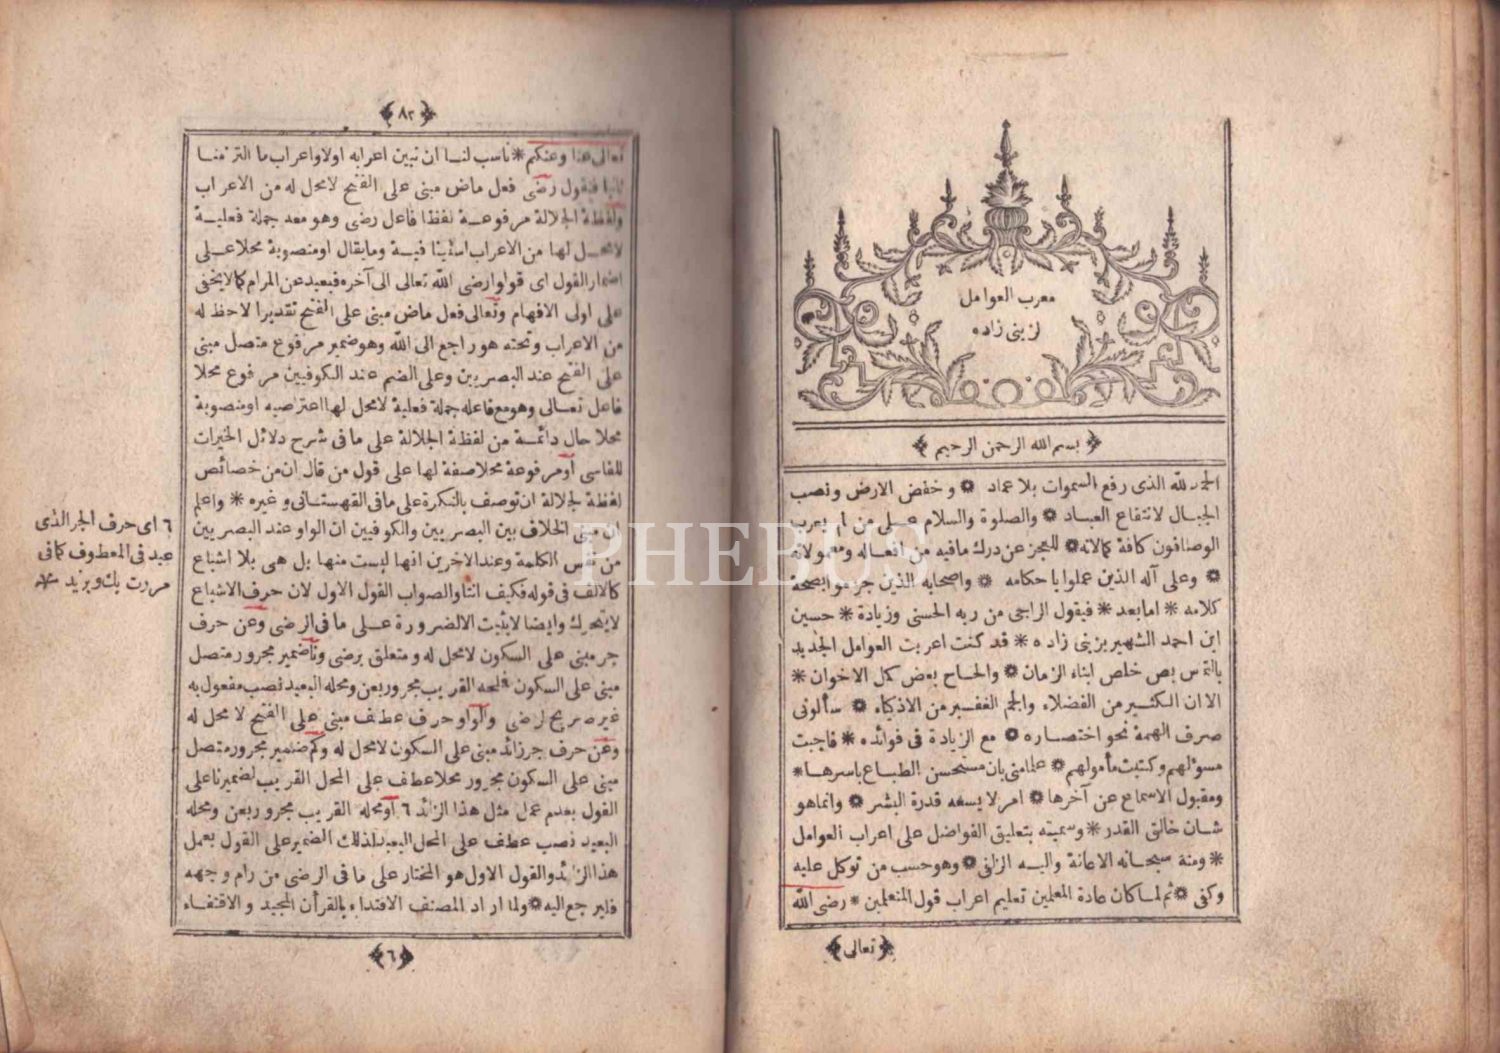 معرب العوامل
لزينى زاده
بسم الله الرحمن الرحيم
الحمد لله الذى رفع السموات بلا عماد * وخفض الارض ونصب
الجبال لانتفاع العباد * والصلوة والسلام على من لم يعرب
الوصافون كافة كمالاته * للعجز عن درك مافيه من افعاله ومعمولاته
* وعلى آله الذين عملوا باحكامه * واصحابه الذين جزموا بصحة
كلامه * اما بعد * فيقول الراجى من ربه الحسنى وزيادة * حسين
ابن احمد الشهير بزينى زاده * قد كنت اعربت العوامل الجديد
بالتماس بعض خلص ابناء الزمان * والحاح بعض كمل الاخوان *
الا ان الكثير من الفضلاء والجم الغفير من الاذكياء * سألونى
صرف الهمة نحو اختصاره * مع الزيادة فى فوائده * فاجبت
مسؤلهم وكتبت مأمولهم * علما منى بان مستحسن الطباع باسرها *
ومقبول الاسماع عن آخرها * امر لا يسعه قدرة البشر * وانما هو
شان خالق القدر * وسميته بتعليق الفواضل على اعراب العوامل
* ومنه سبحانه الاعانة واليه الزلفى * وهو حسب من توكل عليه
وكفى * ثم لما كان عادة المعلمين تعليم اعراب قول المتعلمين * رضى الله
تعالى
٨٢
تعالى عنا وعنكم * ناسب لنا ان نبين اعرابه اولا واعراب ما التزمنا
ثانيا فنقول رضى فعل ماض مبنى على الفتح لا محل له من الاعراب
ولفظة الجلالة مرفوعة لفظا فاعل رضى وهو معه جملة فعلية
لا محل لها من الاعراب استينافية ومايقال او منصوبة محلا على
اضمار القول اى قولوا رضى الله تعالى الى آخره فبعيد عن المرام كما لا يخفى
على اولى الافهام وتعالى فعل ماض مبنى على الفتح تقديرا لا حظ له
من الاعراب وتحته هو راجع الى الله وهو ضمير مرفوع متصل مبنى
على الفتح عند البصريين وعلى الضم عند الكوفيين مرفوع محلا
فاعل تعالى وهو مع فاعله جملة فعلية لا محل لها اعتراضيه او منصوبة
محلا حال دائمة من لفظة الجلالة على ما فى شرح دلائل الخيرات
للفاسى او مرفوعة محلا صفة لها على قول من قال ان من خصائص
لفظة الجلالة ان توصف بالنكرة على ما فى القهستانى وغيره * واعلم
ان مبنى الخلاف بين البصريين والكوفيين ان الواو عند البصريين
من نفس الكلمة وعند الاخرين انها ليست منها بل هى بلا اشباع
كالالف فى قوله فكيف انثا والصواب القول الاول لان حرف الاشباع
لا يتحرك وايضا لا يثبت الا لضرورة على ما فى الرضى وعن حرف
جر مبنى على السكون لا محل له ومتعلق برضى ونا ضمير مجرور متصل
مبنى على السكون فمحله القريب مجرور بعن ومحله البعيد نصب مفعول به
غير صريح لرضى والواو حرف عطف مبنى على الفتح لا محل له
وعن حرف جر زائد مبنى على السكون لا محل له وكم ضمير مجرور متصل
مبنى على السكون مجرور محلا عطف على المحل القريب لضمير نا على
القول بعدم عمل مثل هذا الزائد ٦ او محله القريب مجرور بعن ومحله
البعيد نصب عطف على المحل البعيد لذلك الضمير على القول بعمل
هذا الزائد والقول الاول هو المختار على ما فى الرضى من رام وجهه
فليرجع اليه * ولما اراد المصنف الاقتداء بالقرأن المجيد والاقتفاء
٦
٦ اى حرف الجر الذى
عيد فى المعطوف كما فى
مررت بك وبزيد *
PHEBUS